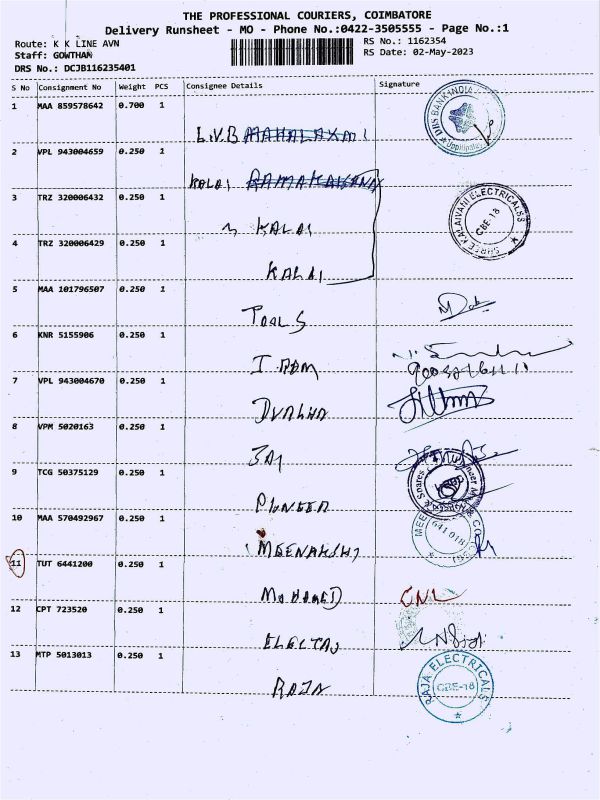 THE PROFESSIONAL COURIERS, COIMBATORE
Delivery Runsheet - MO - Phone No.:0422-3505555 - Page No.:1
Route: K K LINE AVN
Staff: GOWTHAM
DRS No.: DCJB116235401
RS No.: 1162354
RS Date: 02-May-2023
S No Consignment No Weight PCS Consignee Details Signature
1 MAA 859578642 0.700 1
L.V.B MAHALAXMI
DBS BANK INDIA
2 VPL 943004659 0.250 1
KALAI
3 TRZ 320006432 0.250 1
KALAI
SHREE KALAIVANI ELECTRICALSS
CBE-18
4 TRZ 320006429 0.250 1
KALAI
5 MAA 101796507 0.250 1
TOOLS
6 KNR 5155906 0.250 1
7 VPL 943004670 0.250 1
8 VPM 5020163 0.250 1
JAI
9 TCG 50375129 0.250 1
PIONEER
10 MAA 570492967 0.250 1
MEENAKSHI
641 018
11 TUT 6441200 0.250 1
MOHAMED
CNL
12 CPT 723520 0.250 1
13 MTP 5013013 0.250 1
RAJA
RAJA ELECTRICALS
CBE-18